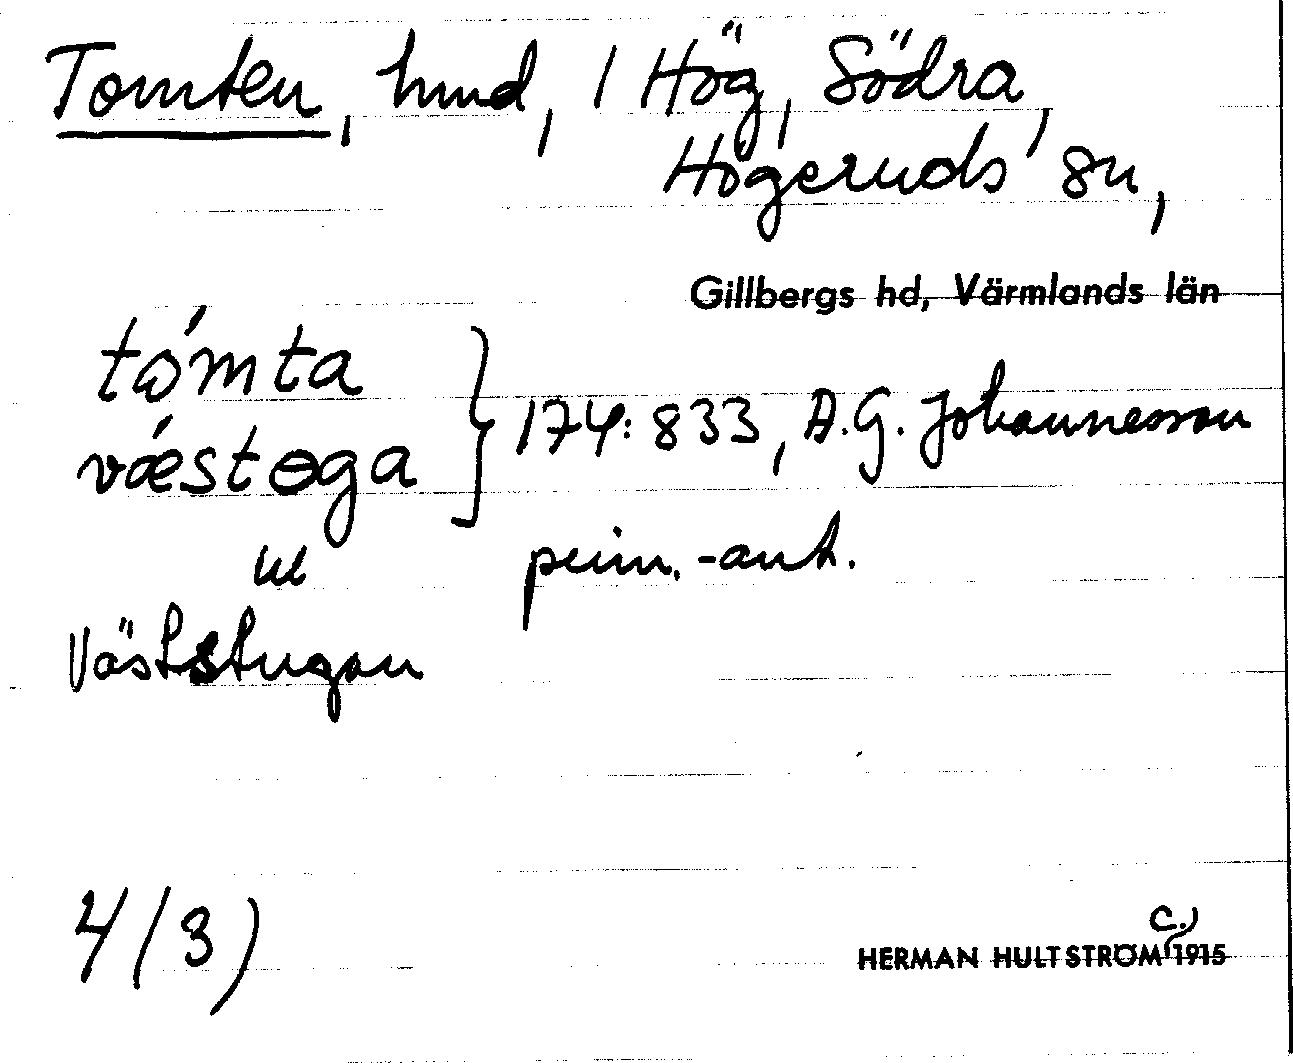 Tomten, hmd, 1 Hög, Södra,
Högeruds sn,
Gillbergs hd, Värmlands län
tómta
vǽstɵga } 174:833, A.G. Johannesson
el prim.-ant.
Väststugan
4(3)
c.)
HERMAN HULTSTRÖM 1915